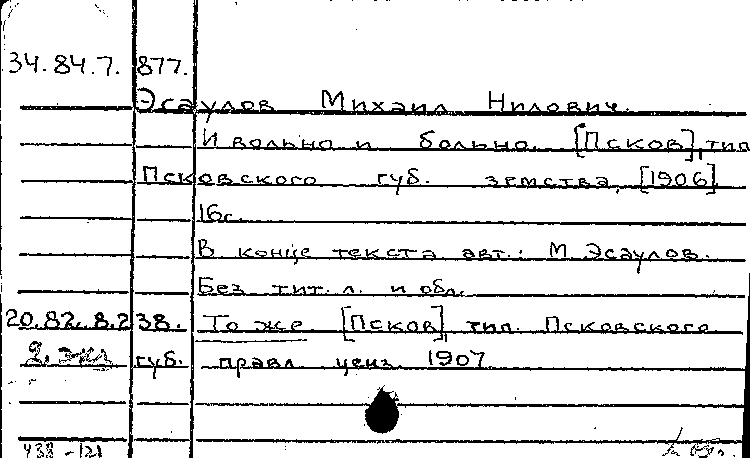 34.84.7. 877.
Эсаулов Михаил Нилович.
И вольно и больно. [Псков], тип.
Псковского губ. земства, [1906].
16с.
В конце текста авт.: М. Эсаулов.
Без тит. л. и обл.
20.82.8.238. То же. [Псков], тип. Псковского
2. экз губ. правл. ценз. 1907
438-121